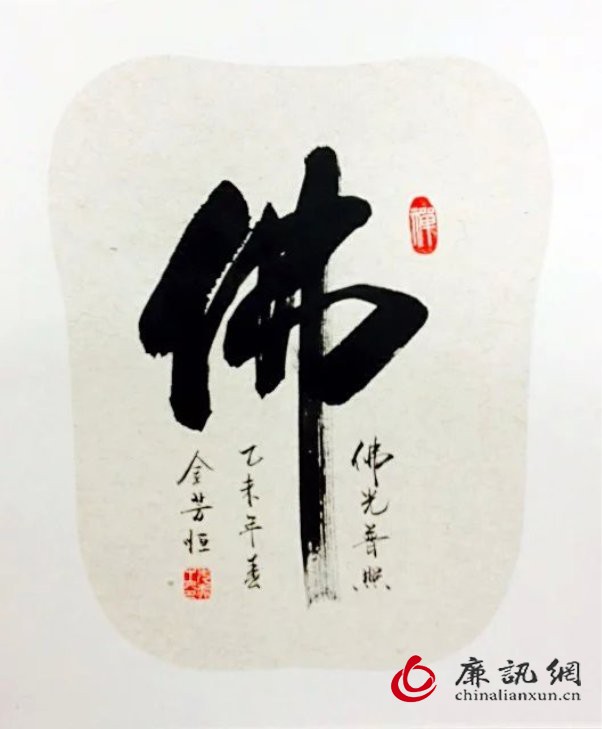 佛
禪
佛光普照
乙未年春
金芳恒
廉訊網
chinalianxun.cn